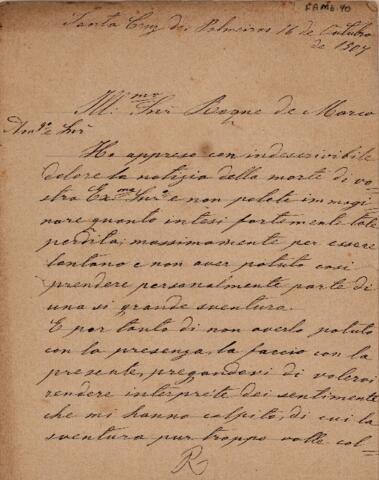 FAMB.90
Santa Cruz das Palmeiras 16 de Outubro
de 1907
Ill.mo Snr Roque de Marco
Am.go e Snr
Ho appreso con indescrivibile
dolore la notizia della morte di vo=
stra Ex.ma Snr.a e non potete immagi
nare quanto intesi fortemente tale
perdita; massimamente per essere
lontano e non aver potuto cosi
prendere personalmente parte di
una si grande sventura.
E por tanto di non averlo potuto
con la presenza, la faccio con la
presente, pregandovi di volervi
rendere interprete dei sentimente
che mi hanno colpito, di cui la
sventura pur troppo volle col=
R